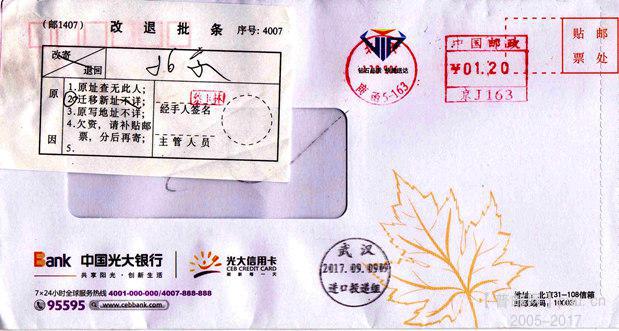 (邮1407) 改退批条 序号: 4007
改寄
退回
北京
原因
1.原址查无此人;
2.迁移新址不详;
3.原写地址不详;
4.欠资，请补贴邮
票，分后再寄;
5.
经手人签名
主管人员
VIP
中国邮政
¥01.20
京J163
贴邮
票处
Bank 中国光大银行
共享阳光·创新生活
光大信用卡
CEB CREDIT CARD
7×24小时全球服务热线 4001-000-000/4007-888-888
95595 www.cebbank.com
武汉
2017.09.09
进口报递组
地址: 北京31-108信箱
2005-2017